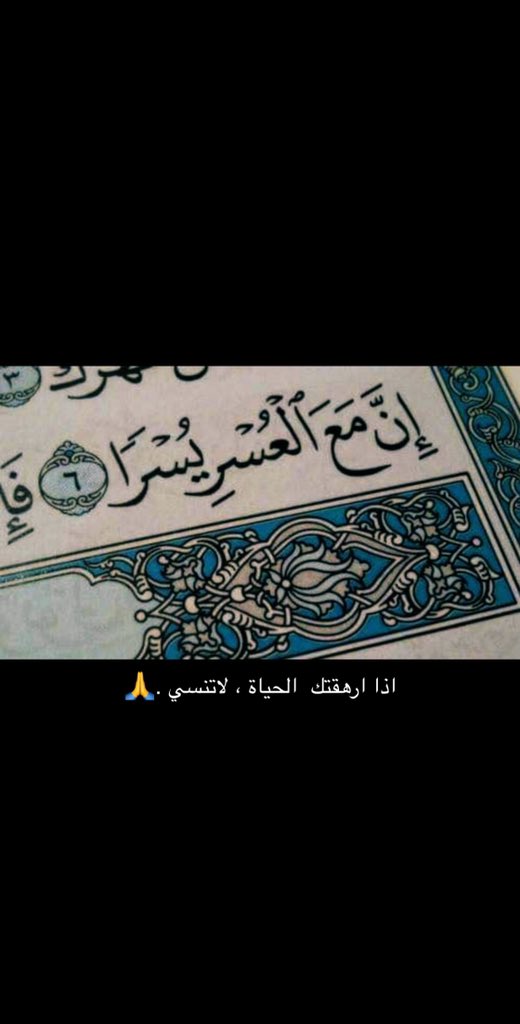 ظَهْرَكَ ٣
إِنَّ مَعَ ٱلْعُسْرِ يُسْرًا ٦
اذا ارهقتك الحياة ، لاتنسي .🙏